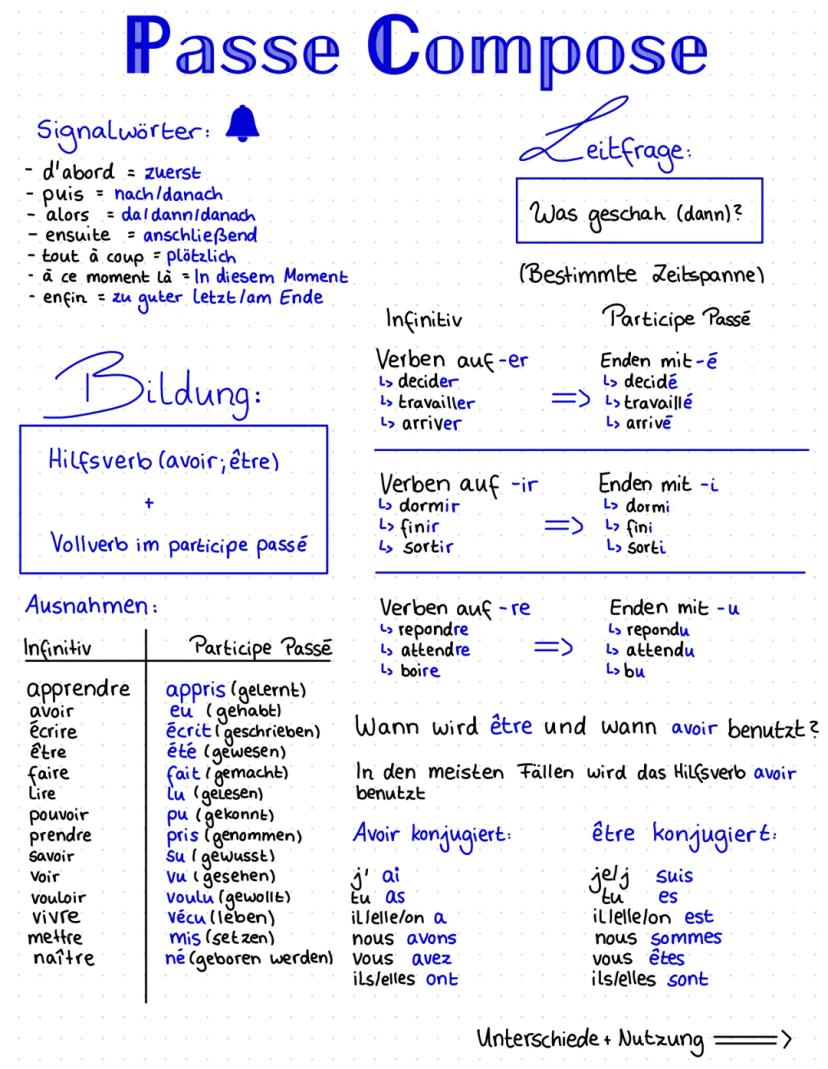 Passe Compose
Signalwörter:
- d'abord = zuerst
- puis = nach/danach
- alors = da/dann/danach
- ensuite = anschließend
- tout à coup = plötzlich
- à ce moment là = In diesem Moment
- enfin = zu guter letzt/am Ende
Leitfrage:
Was geschah (dann)?
(Bestimmte Zeitspanne)
Bildung:
Hilfsverb (avoir; être)
+
Vollverb im participe passé
Infinitiv Participe Passé
Verben auf -er Enden mit -é
↳ decider ↳ decidé
↳ travailler => ↳ travaillé
↳ arriver ↳ arrivé
Verben auf -ir Enden mit -i
↳ dormir ↳ dormi
↳ finir => ↳ fini
↳ sortir ↳ sorti
Verben auf -re Enden mit -u
↳ repondre ↳ repondu
↳ attendre => ↳ attendu
↳ boire ↳ bu
Ausnahmen:
Infinitiv Participe Passé
apprendre appris (gelernt)
avoir eu (gehabt)
écrire écrit (geschrieben)
être été (gewesen)
faire fait (gemacht)
Lire lu (gelesen)
pouvoir pu (gekonnt)
prendre pris (genommen)
savoir su (gewusst)
voir vu (gesehen)
vouloir voulu (gewollt)
vivre vécu (leben)
mettre mis (setzen)
naître né (geboren werden)
Wann wird être und wann avoir benutzt?
In den meisten Fällen wird das Hilfsverb avoir
benutzt
Avoir konjugiert: être konjugiert:
j' ai je/j suis
tu as tu es
il/elle/on a il/elle/on est
nous avons nous sommes
vous avez vous êtes
ils/elles ont ils/elles sont
Unterschiede + Nutzung =>